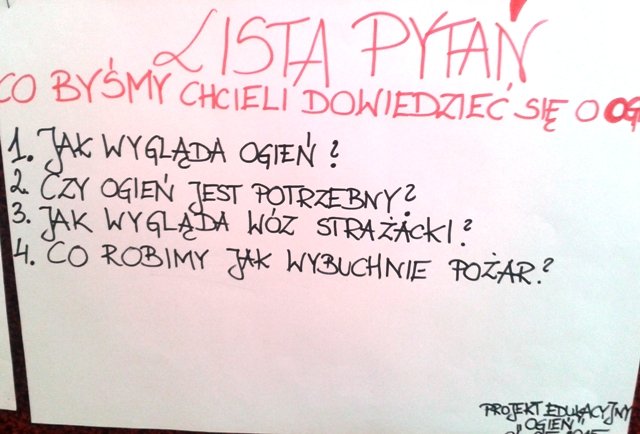 LISTA PYTAŃ
CO BYŚMY CHCIELI DOWIEDZIEĆ SIĘ O OG
1. JAK WYGLĄDA OGIEŃ?
2. CZY OGIEŃ JEST POTRZEBNY?
3. JAK WYGLĄDA WÓZ STRAŻACKI?
4. CO ROBIMY JAK WYBUCHNIE POŻAR?
PROJEKT EDUKACYJNY
"OGIEŃ"